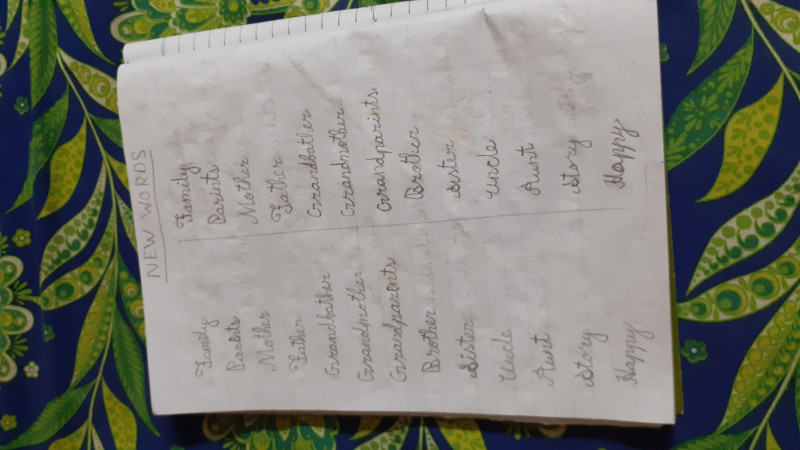 NEW WORDS
Family Family
Parents Parents
Mother Mother
Father Father
Grandbather Grandbather
Grandmother Grandmother
Grandparents Grandparints
Brother Brother
Sister Sister
Uncle Uncle
Aunt Aunt
Story Story
Happy Happy